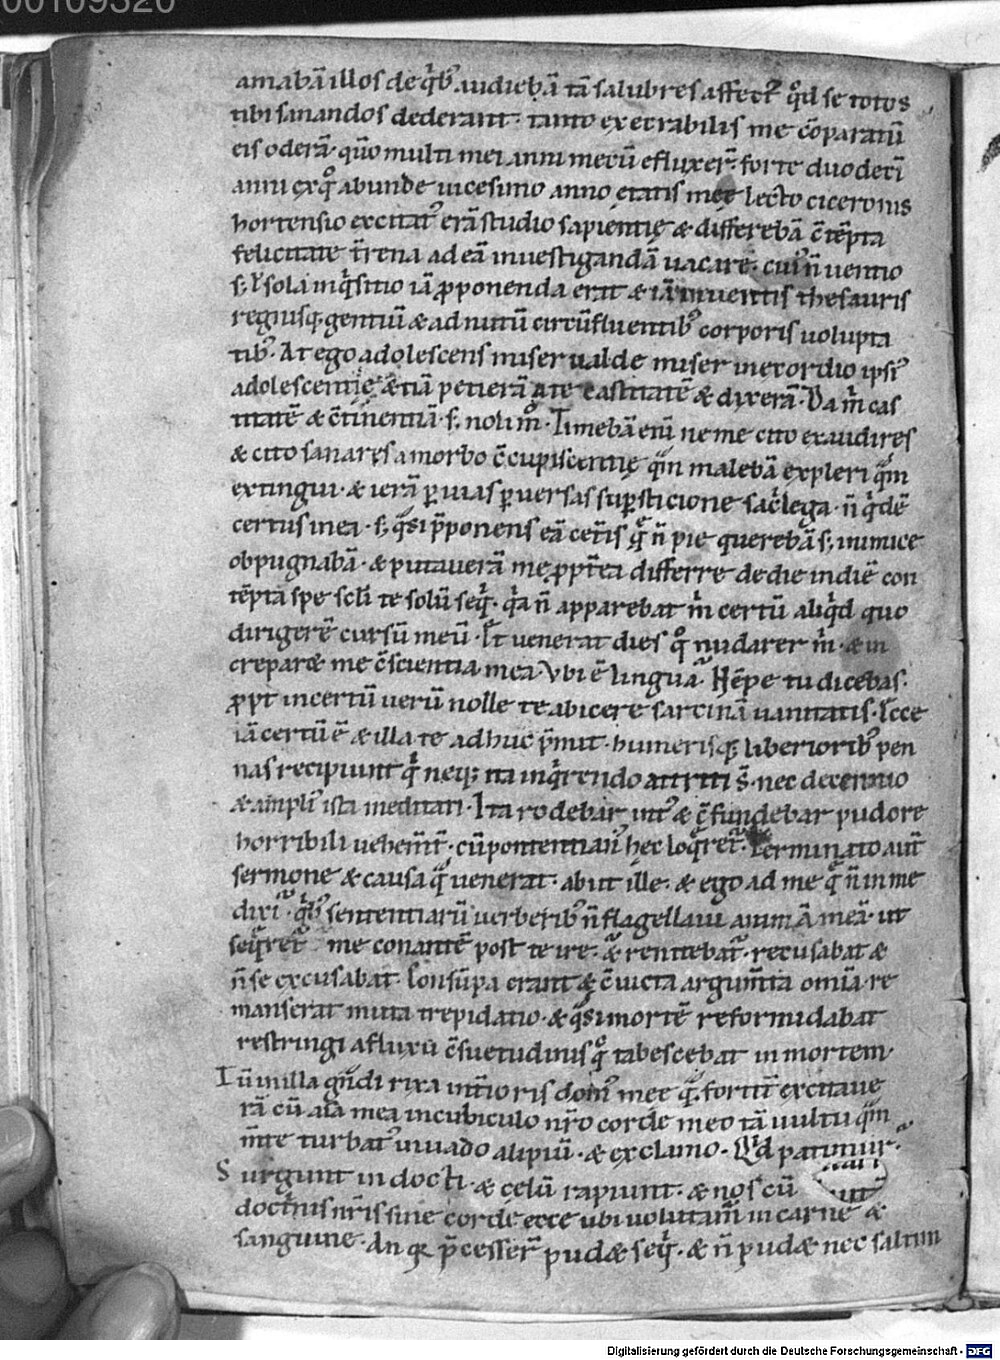 00109320
amabā illos de q̄b; audiebā tā salubres affect; qd se totos
tibi sanandos dederant· tanto execrabilis me cōparatū
eis oderā· qm̄ multi mei anni mecū efluxer̄· forte duodeci
anni ex q° abunde uicesimo anno ętatis meę lecto ciceronis
hortensio excitat᷒ erā studio sapientię & differebā c̄tēpta
felicitate t̄rena ad eā inuestigandā uacare· cui᷒ n̄ uentio
s; uł sola inq̄sitio iā p̄ponenda erat & iā inuentis thesauris
regnisq; gentiū & ad nutū circūfluentib; corporis uolupta
tib;· At ego adolescens miser ualde miser in exordio ipsi᷒
adolescentię &iā petierā a te castitatē & dixerā· Da m̄ cas
titatē & c̄tinentiā· s; noli m°· Timebā enī ne me cito exaudires
& cito sanares a morbo c̄cupiscentię q̄m malebā expleri q̄m
extingui· & ierā p̱ uias p̱uersas sup̱sticione sac̄lega· n̄ q̄dē
certus in ea· s; q̄si p̄ponens eā cet̄is q̄ n̄ pie querebā s; inimice
obpugnabā· & putauerā me p̱pt̄ea differre de die in diē con
tēpta spe sc̄li te solū seq̄· q̄a n̄ apparebat m̄ certū aliq̄d quo
dirigerē cursū meū· Et uenerat dies q° nudarer m̄· & in
creparet me c̄scientia mea· Vbi ē lingua· Nēpe tu dicebas·
p̱pt incertū uerū nolle te abicere sarcinā uanitatis· Ecce
iā certū ē & illa te adhuc p̄mit· humerisq; liberiorib; pen
nas recipiunt q̄ neq; ita inq̄rendo attriti s̄· nec decennio
& ampli᷒ ista meditati· Ita rodebar int᷒ & c̄fundebar pudore
horribili uehem̄t̄· cū pontentian᷒ hec loq̄ret̄· Terminato aut̄
sermone & causa q̄ uenerat· abiit ille· & ego ad me q̄ n̄ in me
dixi· q̄b; sententiarū uerberib; n̄ flagellaui animā meā· ut
seq̄ret̄ me conantē post te ire· & renitebat̄· recusabat &
n̄ se excusabat· Consūpta erant & c̄uicta argum̄ta omīa· re
manserat muta trepidatio· & q̄si mortē reformidabat
restringi a fluxu c̄suetudinis q° tabescebat in mortem·
Tū in illa g̱ndi rixa int̄ioris dom᷒ meę q̄ fortit̄ excitaue
rā cū aīa mea in cubiculo nr̄o corde meo tā uultu q̄m
m̄te turbat᷒ inuado alipiū· & exclamo· Qd patimur·
Surgunt indocti· & celū rapiunt· & nos cū
doctrinis nr̄is sine corde ecce ubi uolutam̄ in carne &
sanguine· An qr p̄cesser̄ pudet seq̄· & n̄ pudet nec saltim
Digitalisierung gefördert durch die Deutsche Forschungsgemeinschaft - DFG